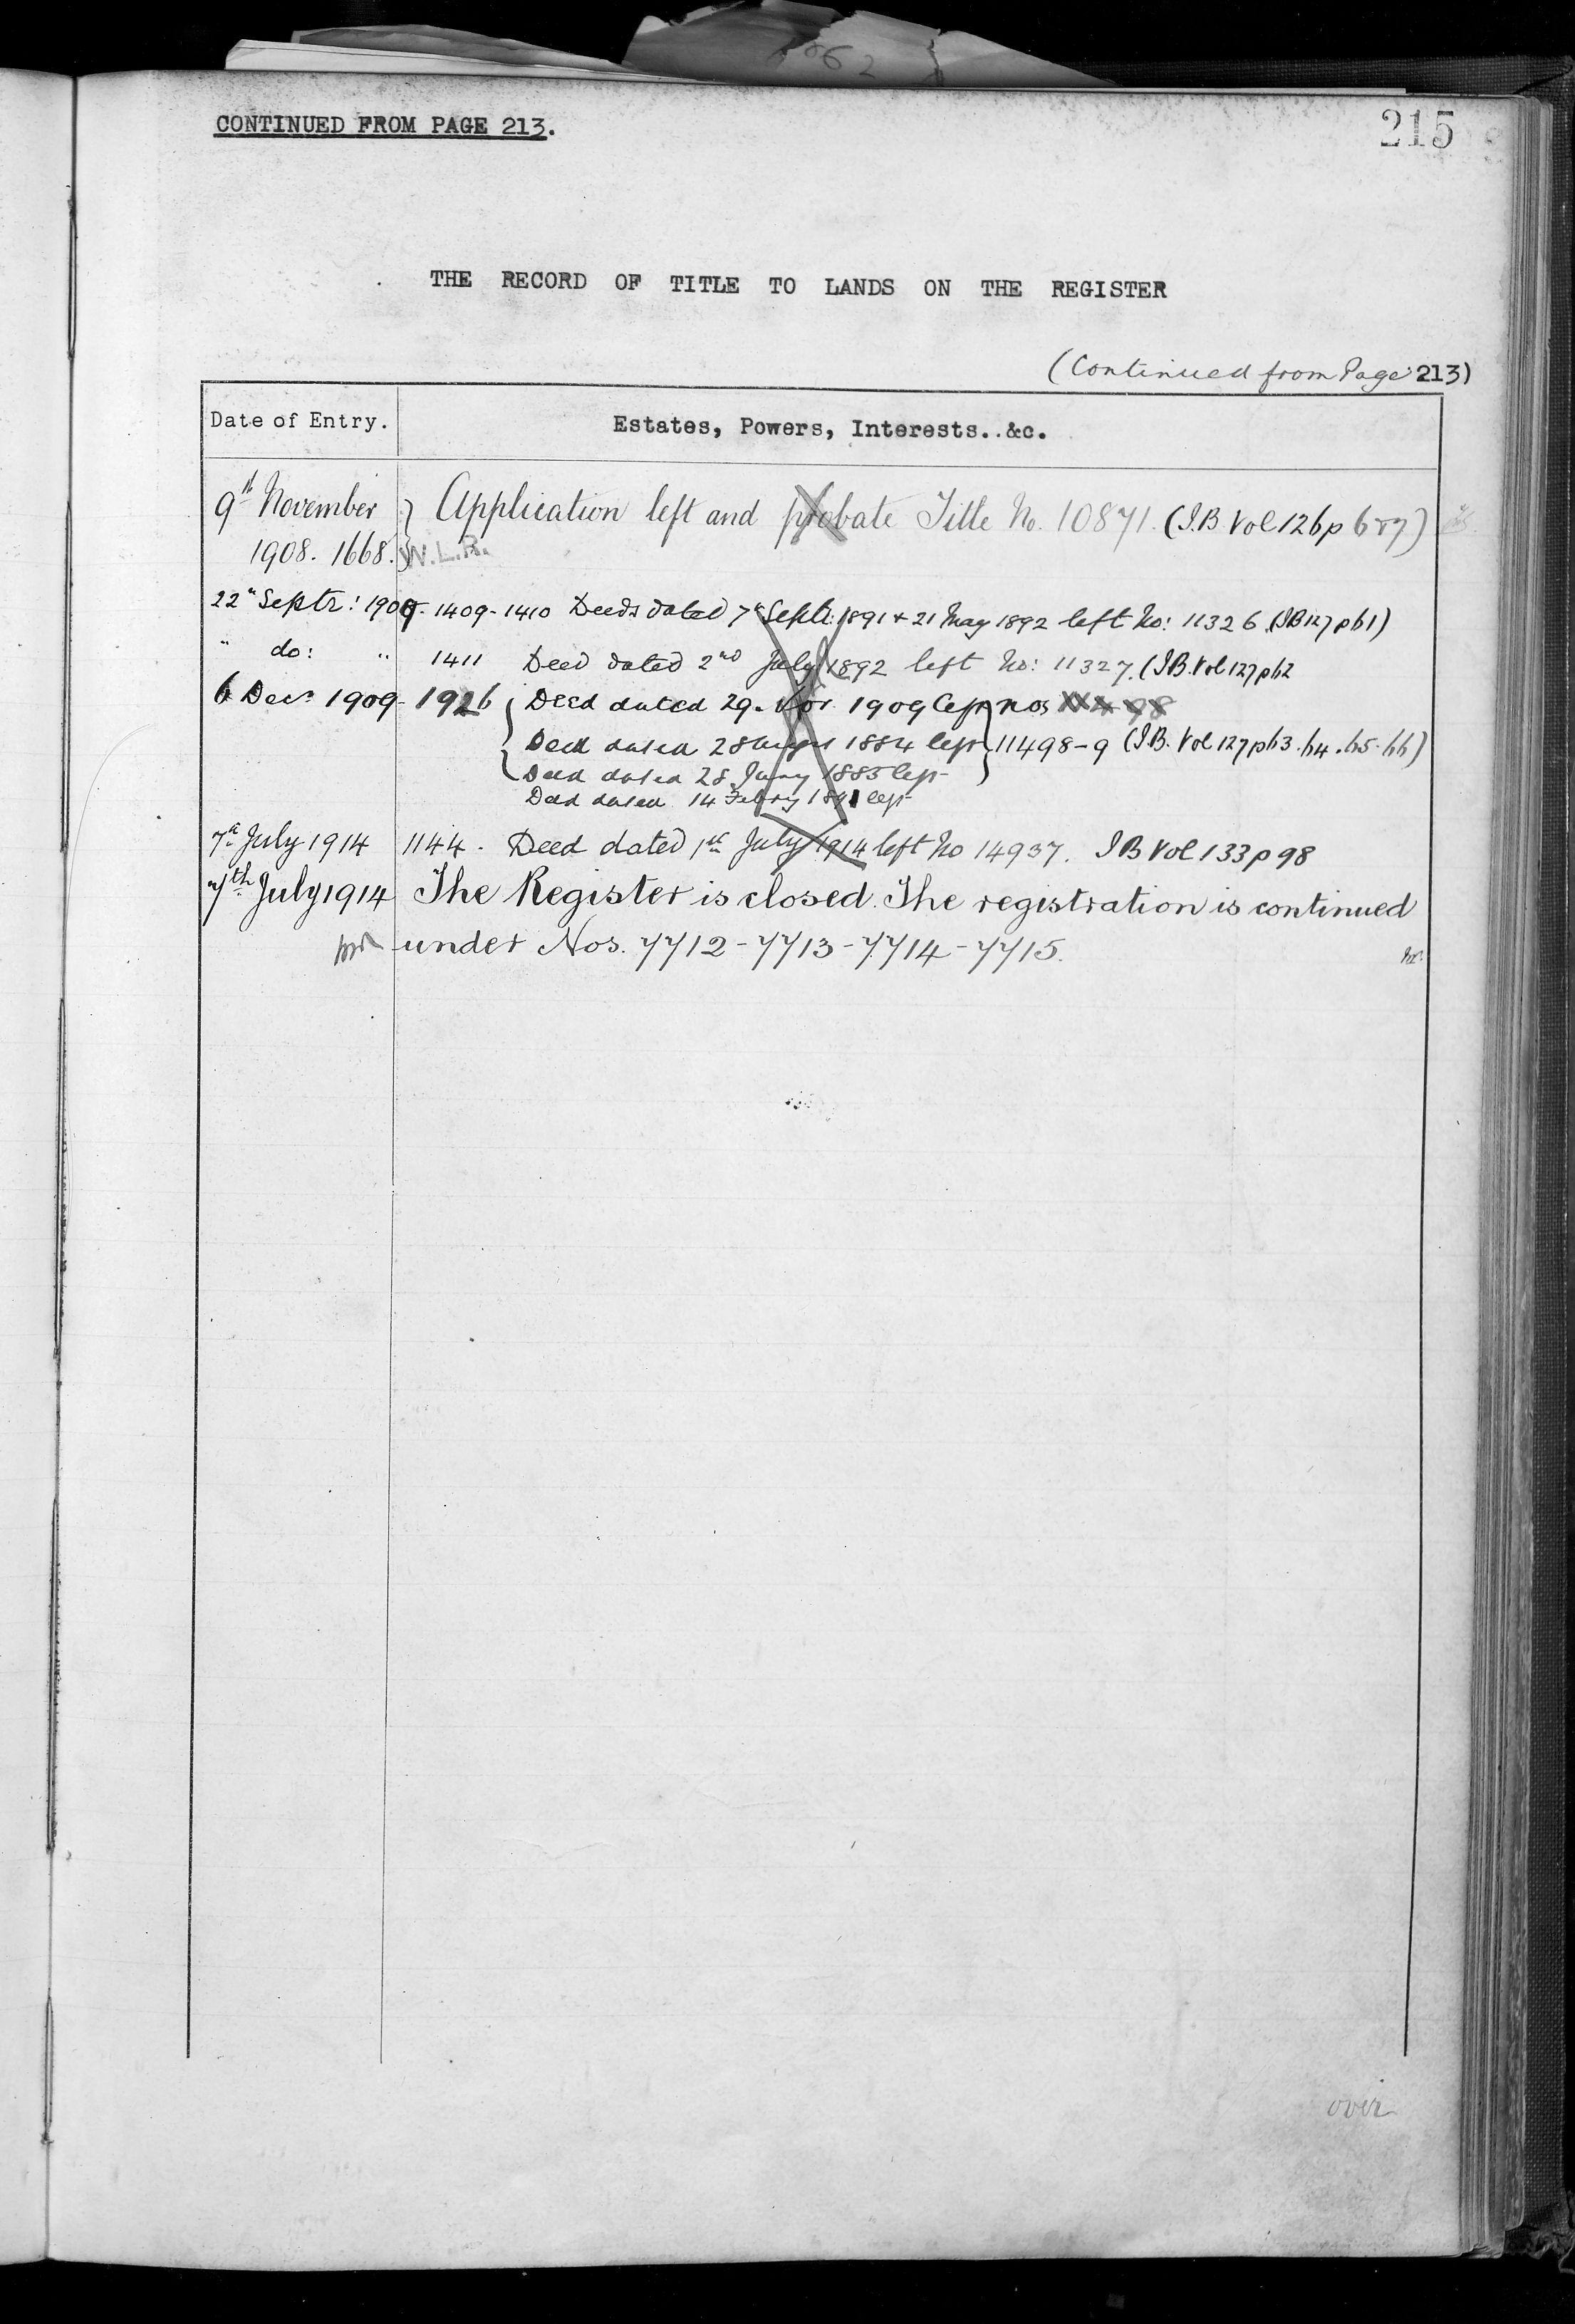 CONTINUED FROM PAGE 213.
215
THE RECORD OF TITLE TO LANDS ON THE REGISTER
(Continued from Page 213)
Date of Entry. Estates, Powers, Interests..&c.
9th November } Application left and probate Title No. 10871. (I.B Vol 126 p 6&7)
1908. 1668. W.L.R.
22n Septr: 1909 - 1409 - 1410 Deeds dated 7th Septr: 1891 + 21 May 1892 left No: 11326 (IB 127 p 61)
" do: " 1411 Deed dated 2nd July 1892 left No: 11327. (IB. Vol 127 p 62
6 Decr 1909 - 1926 { Deed dated 29. Nov 1909 left } nos
Deed dated 28 1884 left 11498-9 (I.B. Vol 127 p 63. 64. 65. 66)
Deed dated 28 1885 left
Deed dated 14 Febry 1891 left
7th July 1914 1144 - Deed dated 1st July 1914 left No 14937. IB Vol 133 p 98
7th July 1914 The Register is closed. The registration is continued
under Nos. 7712 - 7713 - 7714 - 7715.
over